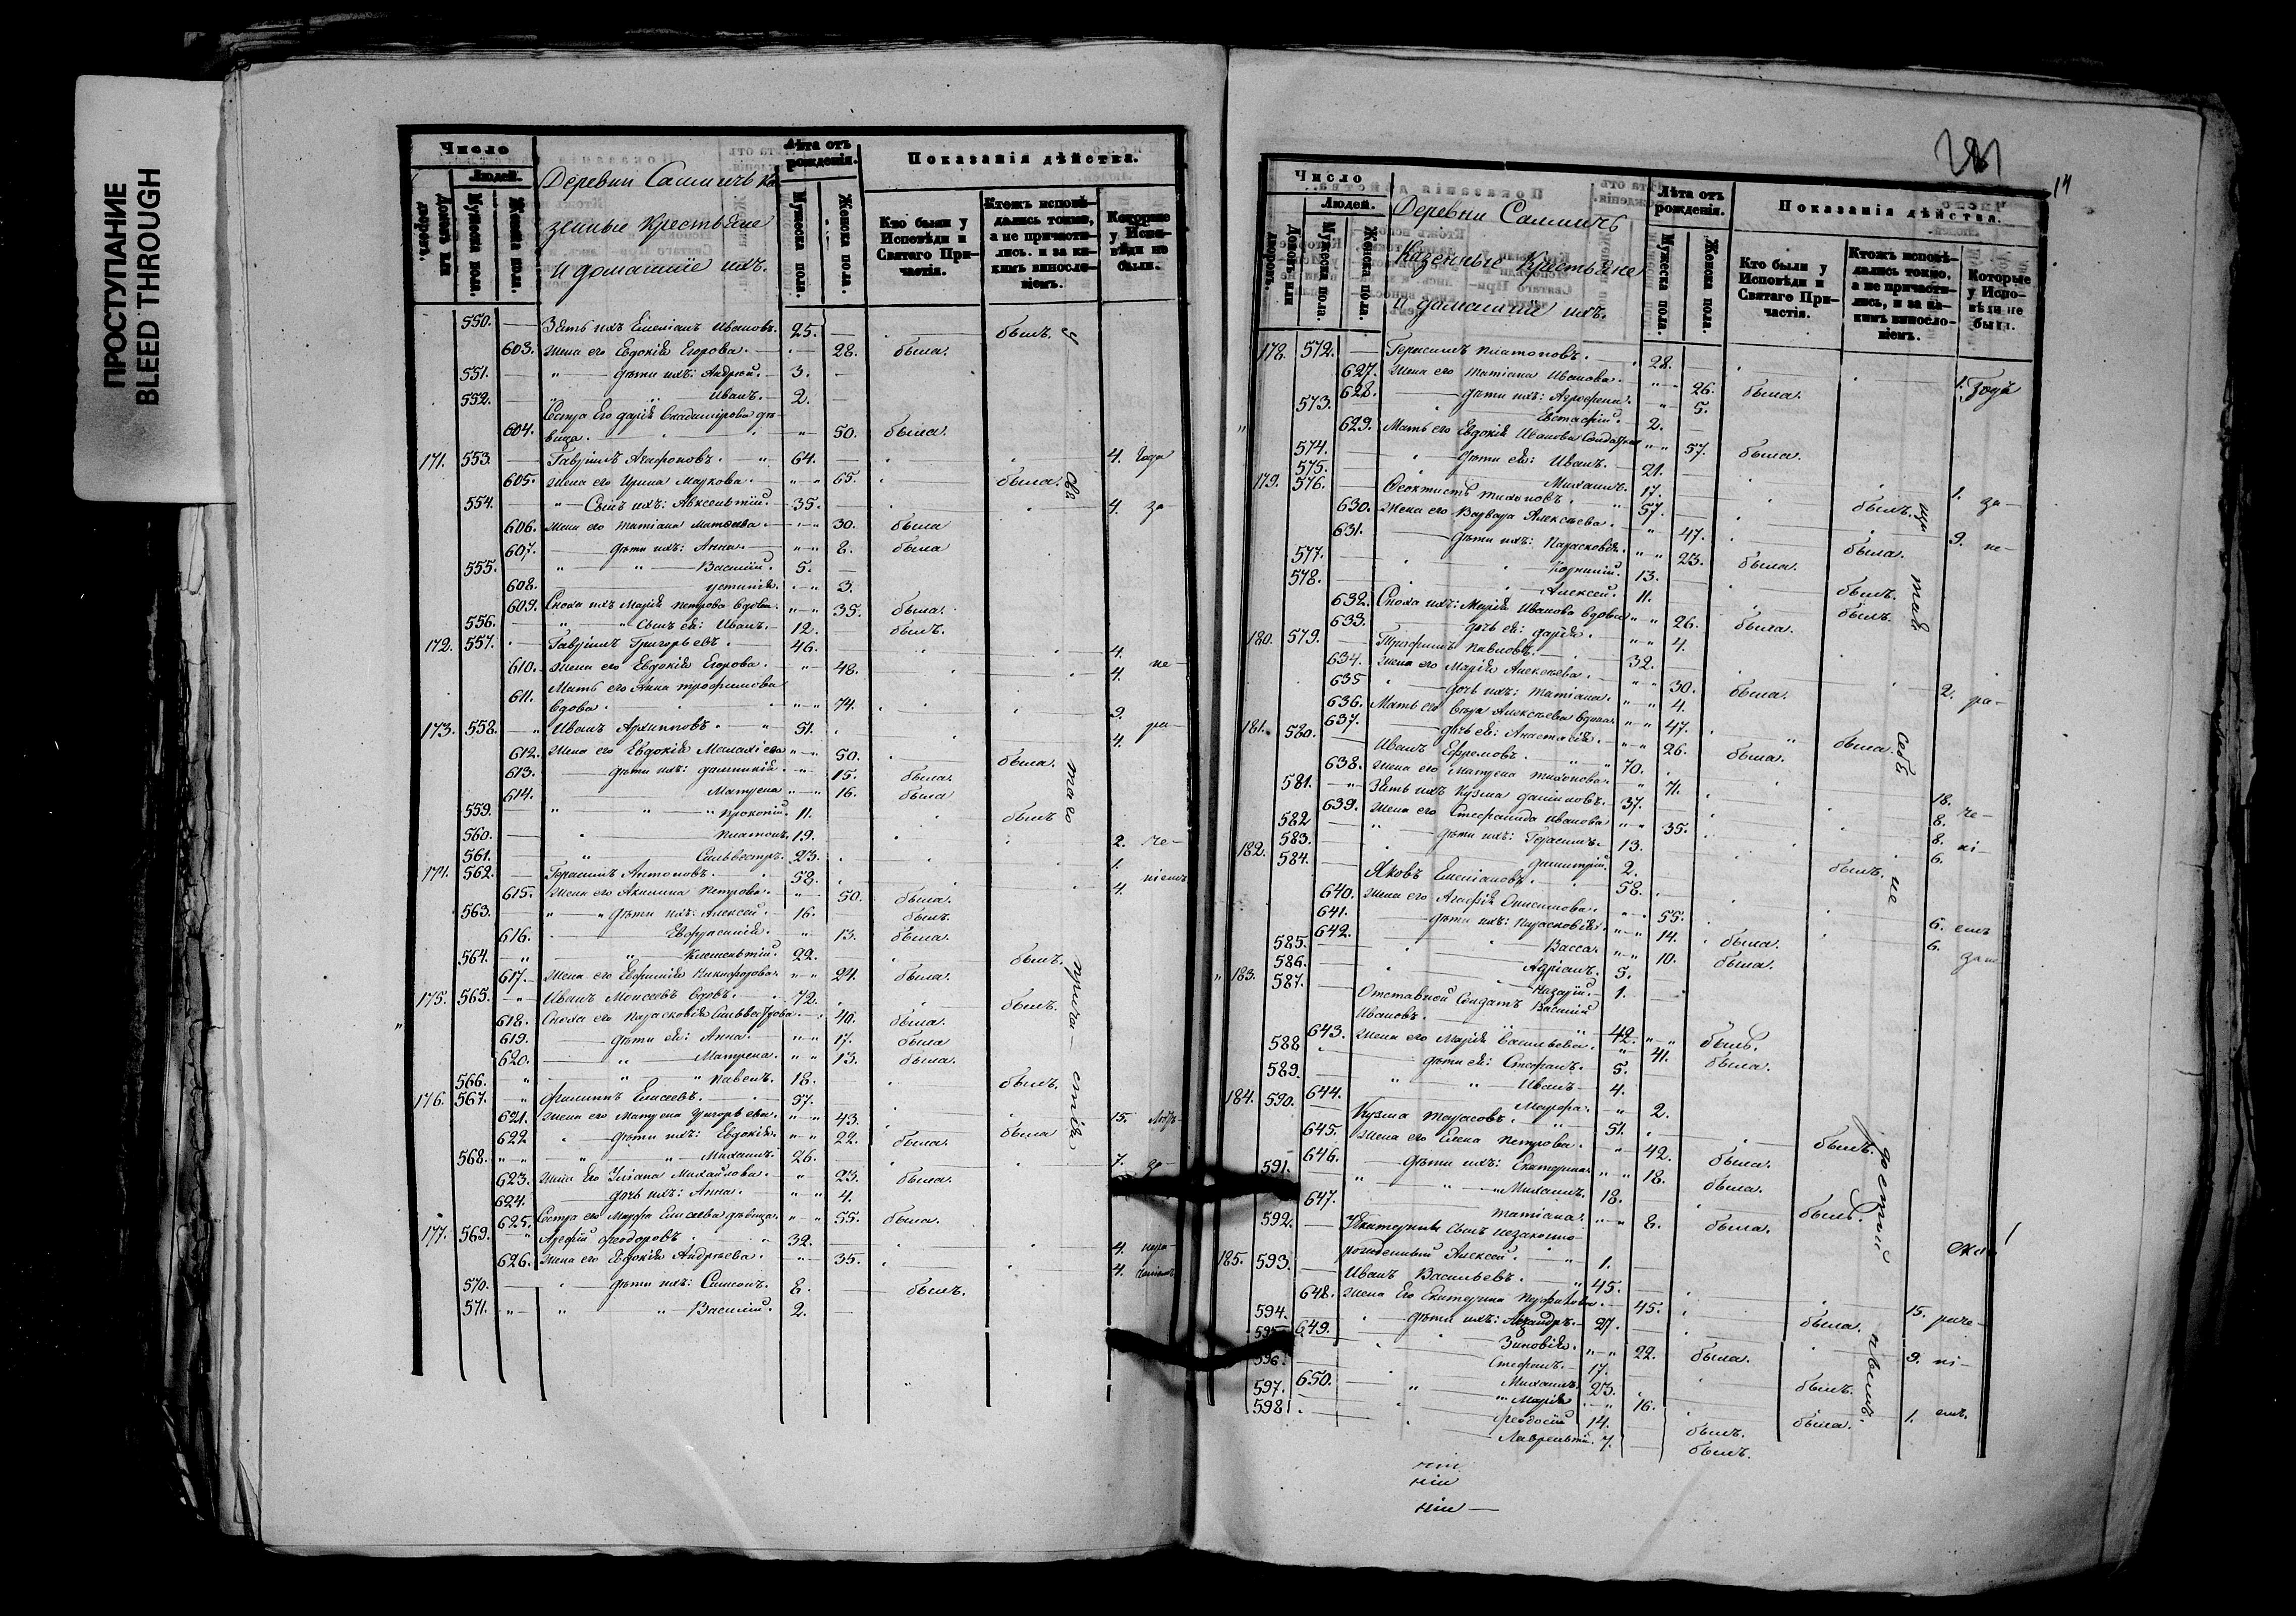 ПРОСТУПАНИЕ
BLEED THROUGH
Число
Людей.
Домовъ или дворовъ.
Мужеска пола.
Женска пола.
Деревни Саминъ ка
зенные крестьяне
и домашніе ихъ.
Лѣта отъ рожденія.
Мужеска пола.
Женска пола.
Показанія дѣйства.
Кто были у Исповѣди и Святаго Причастія.
Ктожъ исповѣдались токмо, а не причастились. и за какимъ винословіемъ.
Которые у Исповѣди не были.
550. Зять ихъ Емеліанъ Ивановъ. 25. былъ.
603. Жена его Евдокія Егорова. 28. была.
551. дѣти ихъ: Андрей. 3.
552. Иванъ. 2.
Сестра Его Дарія Владимірова дѣ-
604. вица. 50. была.
171. 553. Гавріилъ Агафоновъ. 64. 4. года
605. Жена его Ирина Маркова. 65. была.
554. Сынъ ихъ: Авксентій. 35. 4. за
606. Жена его Татіана Матвѣева. 30. была
607. дѣти ихъ: Анна. 8. была
555. Василій. 5.
608. Устинія. 3.
609. Сноха ихъ Марія Петрова вдова. 35. была.
556. Сынъ ея: Иванъ. 12. былъ.
172. 557. Гавріилъ Григорьевъ. 46. 4.
610. Жена его Евдокія Егорова. 48. 4. не-
Мать его Анна Трофимова
611. вдова. 74. 9.
173. 558. Иванъ Архиповъ. 51. 4. ра-
612. Жена его Евдокія Малахіева 50. была.
613. дѣти ихъ: Домникія. 15. была.
614. Матрена 16. была
559. Прокопій. 11. былъ
560. Платонъ. 19. 2. че-
561. Сильвестръ. 23. 1.
174. 562. Герасимъ Антоновъ. 58. 4. ніемъ
615. Жена его Акилина Петрова. 50. была.
563. дѣти ихъ: Алексей. 16. былъ
616. Евфрасинія. 13. была.
564. Климентій. 22. былъ.
617. Жена его Евфимія Никифорова. 24. была.
175. 565. Иванъ Моисеевъ вдовъ. 72. былъ.
618. Сноха его Парасковія Сильвестрова. 40. была.
619. дѣти ея: Анна. 17. была
620. Матрена. 13. была.
566. Павелъ. 18. былъ.
176. 567. Филиппъ Елисеевъ. 57. 15.
621. Жена его Матрена Григорьева. 43. была
622 дѣти ихъ: Евдокія. 22. была.
568. Михаилъ. 26. 7. за-
623. Жена Его Уліана Михайлова. 23. была.
624. дочь ихъ: Анна. 4.
625. Сестра его Марфа Елисеева дѣвица. 55. была.
177. 569. Арефій Феодоровъ. 32. 4. нера
626. Жена его Евдокія Андреева. 35. 4.
570. дѣти ихъ: Самсонъ. 8. былъ.
571. Василій. 2.
у
свя
таго
прича-
стія
14
Число
Людей.
Домовъ или дворовъ.
Мужеска пола.
Женска пола.
Деревни Саминъ
Казенные крестьяне
и домашніе ихъ.
Лѣта отъ рожденія.
Мужеска пола.
Женска пола.
Показанія дѣйства.
Кто были у Исповѣди и Святаго Причастія.
Ктожъ исповѣдались токмо, а не причастились, и за какимъ винословіемъ.
Которые у Исповѣди не были.
178. 572. Герасимъ Платоновъ. 28. 1. Годъ
627. Жена его Татіана Иванова. 26. была.
628. дѣти ихъ: Агрофена. 5.
573. Евстафій. 2.
629. Мать его Евдокія Иванова Солдатка 57. была.
574. дѣти ея: Иванъ. 21. 1. за-
575. Михаилъ. 17. былъ.
179. 576. Феоктистъ Тихоновъ. 57. 9. не-
630. Жена его Варвара Алексѣева. 47. была.
631. дѣти ихъ: Парасковія. 23. была.
577. Корнилій. 13. былъ.
578. Алексей. 11. былъ.
632. Сноха ихъ: Марія Иванова вдова 26. была.
633. дочь ея: Дарія. 4.
180. 579. Трофимъ Павловъ. 32. 2. ра-
634. Жена его Марія Алексѣева. 30. была.
635 дочь ихъ: Татіана. 4.
636. Мать его Вѣра Алексѣева вдова. 47. была.
637. дочь ея: Анастасія. 26. была.
181. 580. Иванъ Ефремовъ. 70. 18. че-
638. Жена его Матрена Тихонова. 71. 8.
581. Зять ихъ Кузма Даниловъ. 37. 8. ні-
639. Жена его Стефанида Иванова 35. 6.
582 дѣти ихъ: Герасимъ. 13. былъ.
583. Димитрій. 2.
182. 584. Яковъ Емеліановъ. 58. 6. емъ
640. Жена его Агафія Онисимова. 55. 6.
641. дѣти ихъ: Парасковія. 14. была.
642. Васса. 10. была.
585. Адріанъ. 5.
586. Назарій. 1.
183. 587. Отставной Солдатъ Василій
Ивановъ. 42. былъ.
643. Жена его Марія Васильева. 41. была.
588 дѣти ея: Стефанъ. 5.
589. Иванъ 4.
644. Марфа. 2.
184. 590. Кузма Тарасовъ. 51. былъ.
645. Жена его Елена Петрова. 42. была.
646. дѣти ихъ: Екатерина 18. была.
591. Михаилъ. 18. былъ.
647. Татіана. 8. была.
592. Екатерины сынъ незаконно-
рожденный Алексей. 1.
185. 593. Иванъ Васильевъ. 45. 15.
648. Жена Его Екатерина 45. была.
594. дѣти ихъ: 27. 9. ні-
649. Зиновія. 22. была.
595. Стефанъ. 17. былъ.
596. Михаилъ. 23. 1. емъ.
650. Марія 16. была.
597. Феодосій 14. былъ.
598. Лаврентій. 7. былъ.
себѣ
не